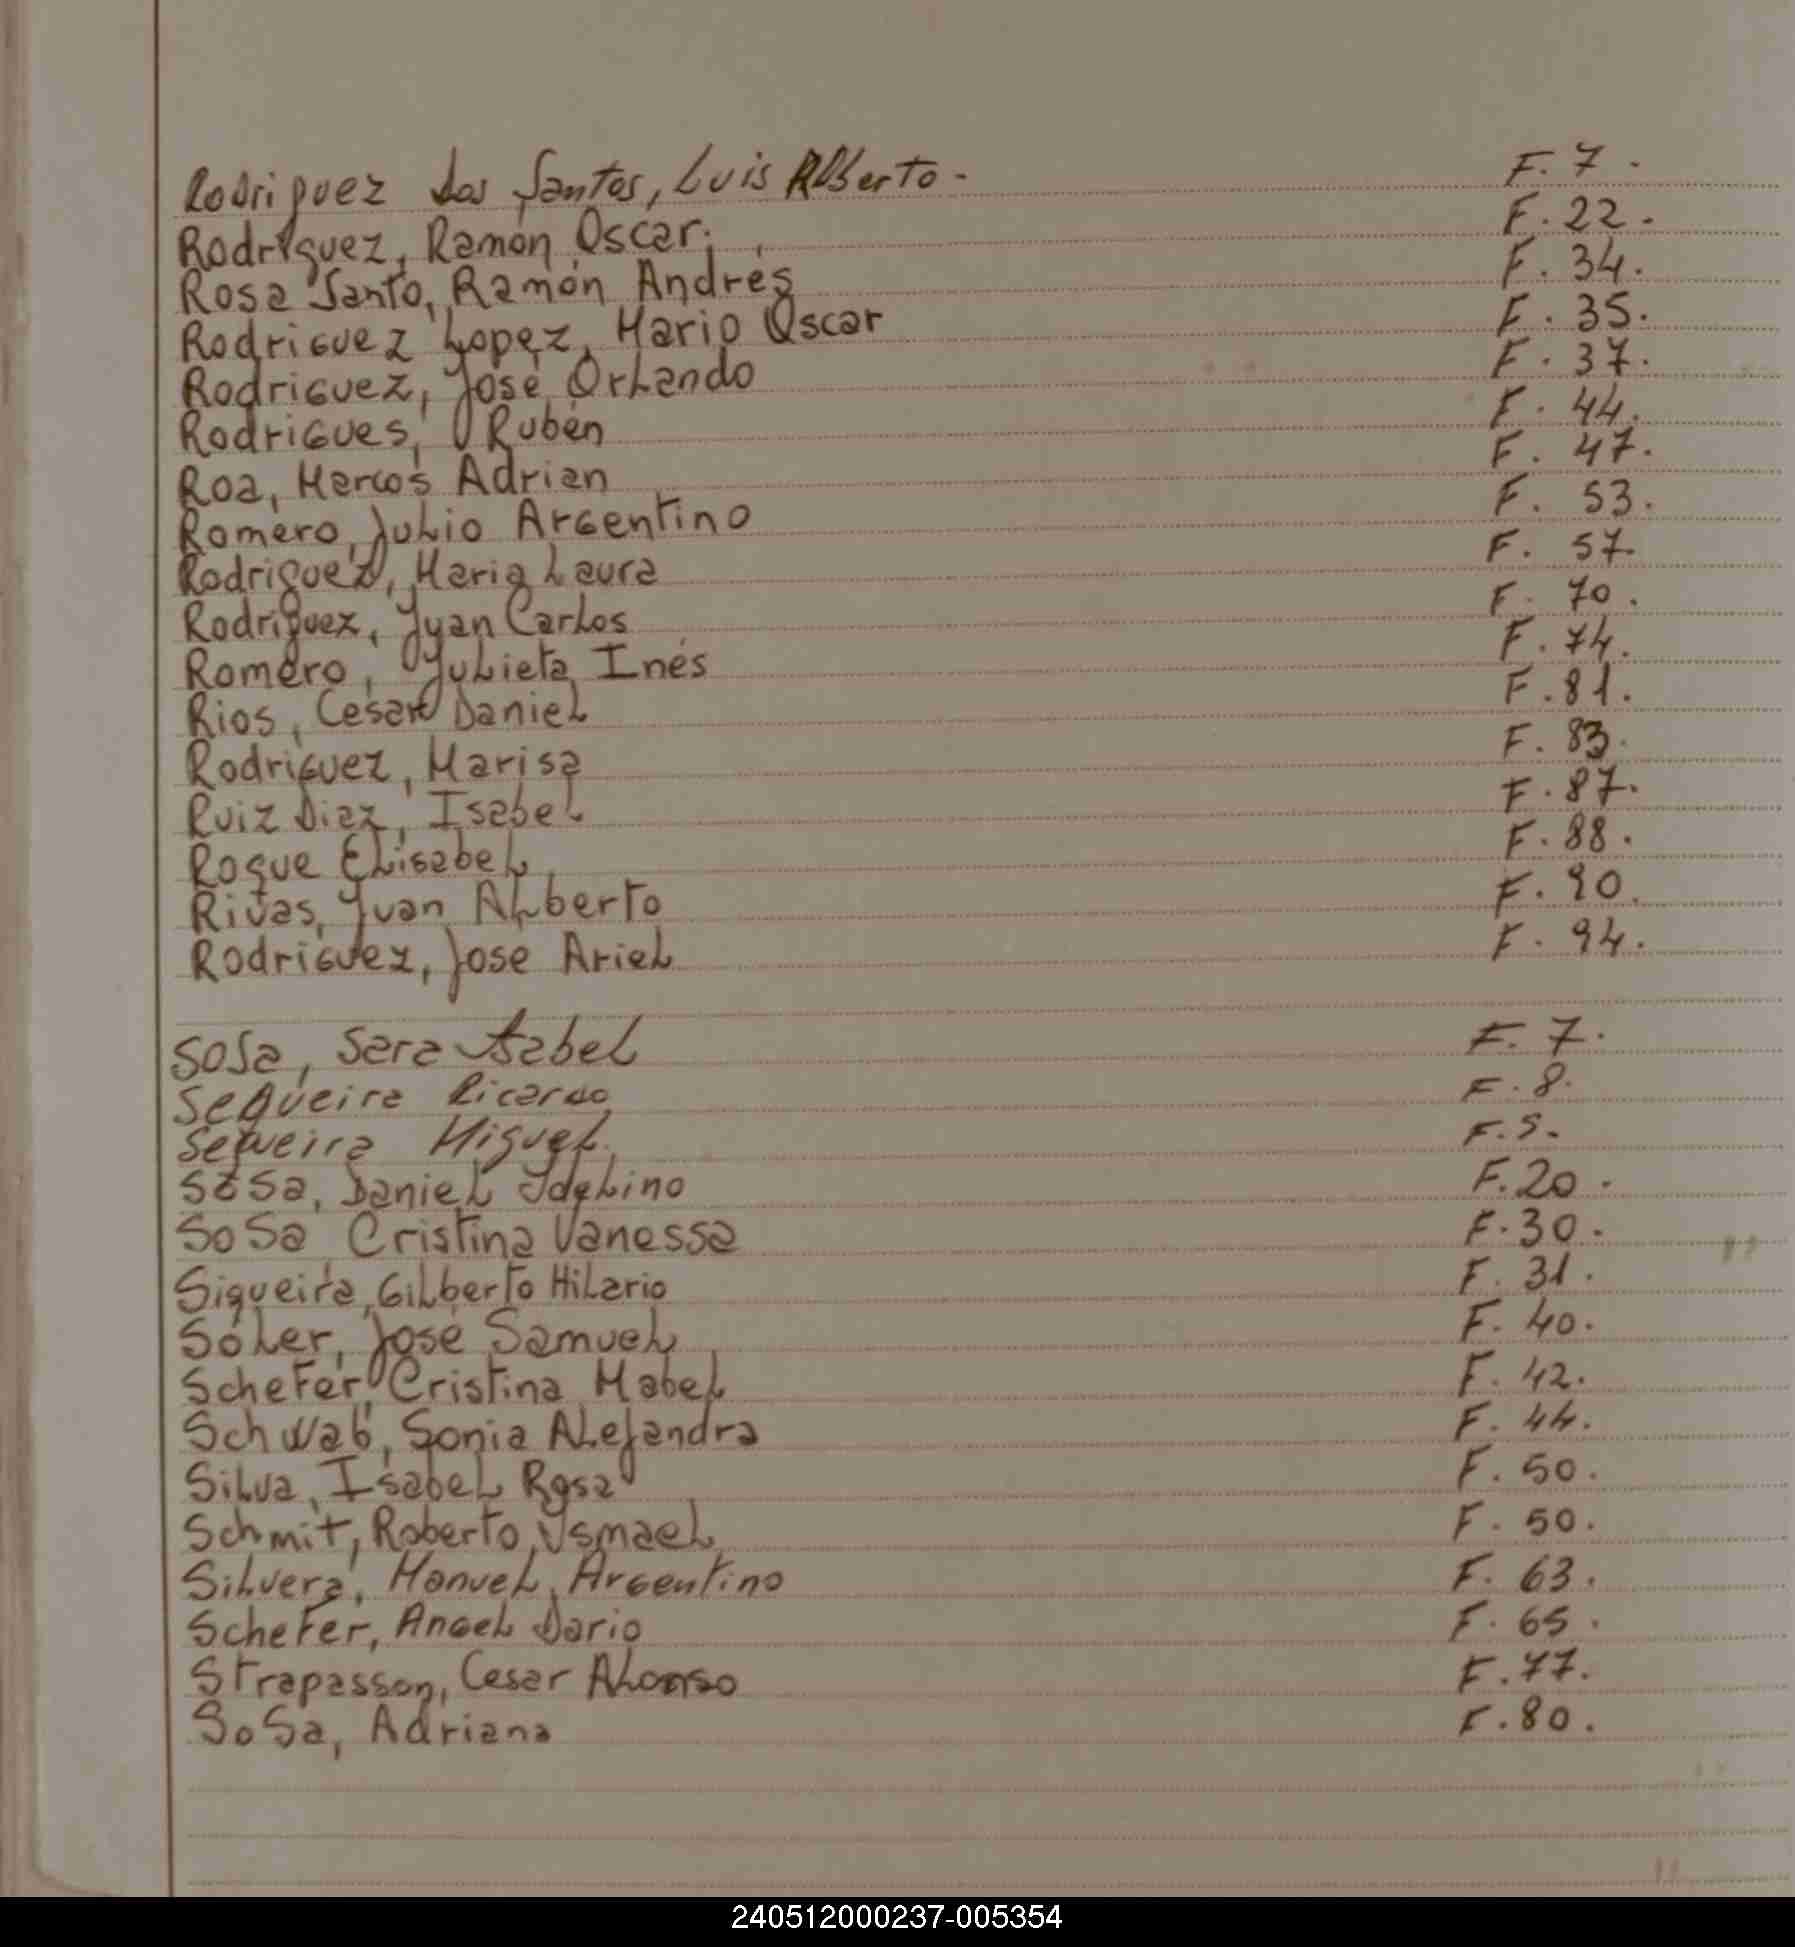 Rodriguez Dos Santos, Luis Alberto. F. 7.
Rodriguez, Ramón Oscar. F. 22.
Rosa Santo, Ramón Andrés F. 34.
Rodriguez Lopez, Mario Oscar F. 35.
Rodriguez, José Orlando F. 37.
Rodrigues, Rubén F. 44.
Roa, Marcos Adrian F. 47.
Romero, Julio Argentino F. 53.
Rodriguez, Maria Laura F. 57.
Rodriguez, Juan Carlos F. 70.
Romero, Julieta Inés F. 74.
Rios, Cesar Daniel F. 81.
Rodriguez, Marisa F. 83.
Ruiz Diaz, Isabel F. 87.
Roque Elisabel F. 88.
Rivas, Juan Alberto F. 90.
Rodriguez, Jose Ariel F. 94.
Sosa, Sara Isabel F. 7.
Sequeira Ricardo F. 8.
Sequeira Miguel. F. 9.
Sosa, Daniel F. 20.
Sosa Cristina Vanessa F. 30.
Siqueira, Gilberto Hilario F. 31.
Soler, José Samuel F. 40.
Schefer, Cristina Mabel F. 42.
Schwab, Sonia Alejandra F. 44.
Silva, Isabel Rosa F. 50.
Schmit, Roberto Ysmael F. 50.
Silvera, Manuel Argentino F. 63.
Schefer, Angel Dario F. 65.
Strapasson, Cesar Alonso F. 77.
Sosa, Adriana F. 80.
240512000237-005354